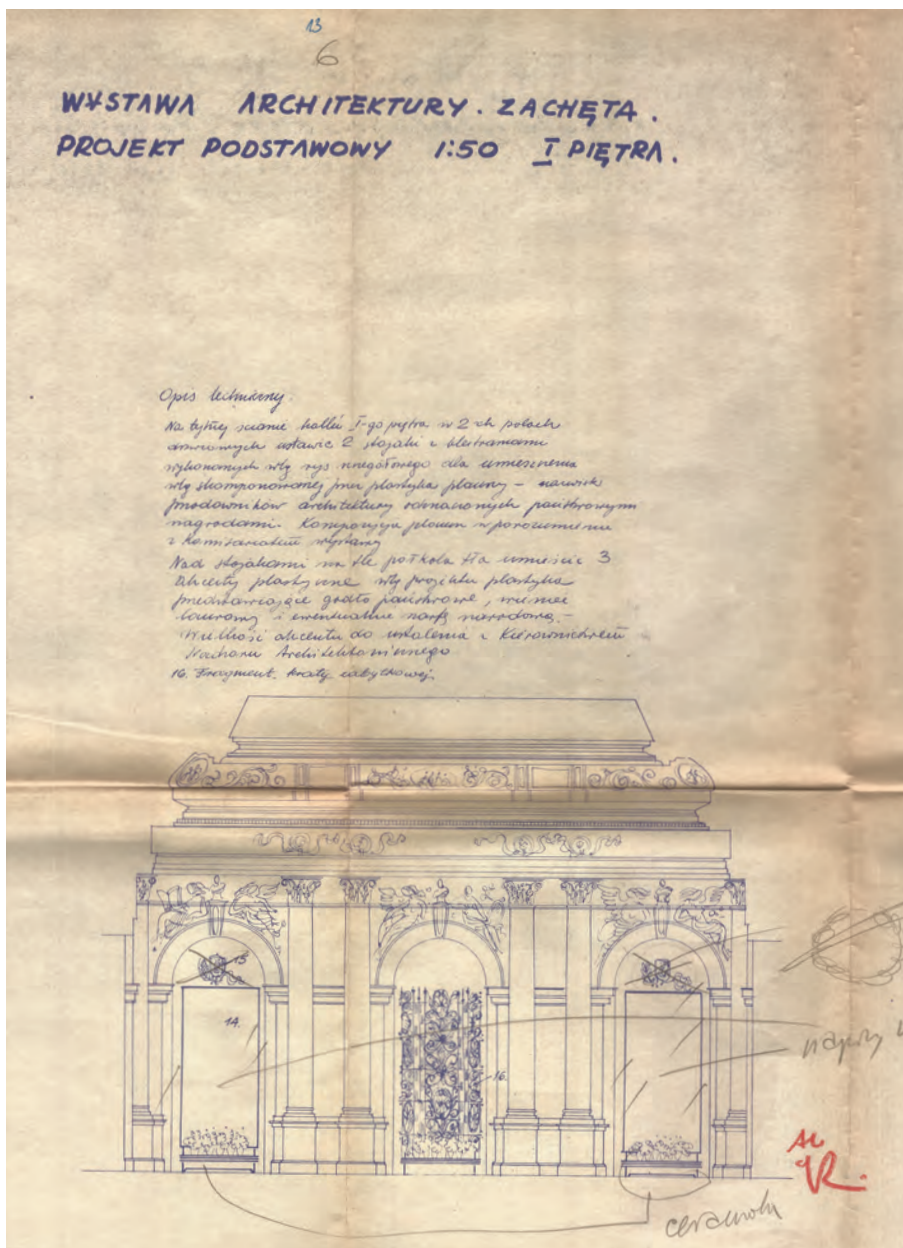 13
6
WYSTAWA ARCHITEKTURY. ZACHĘTA.
PROJEKT PODSTAWOWY 1:50 I PIĘTRA.
Opis techniczny.
Na tylnej ścianie hallu I-go piętra w 2-ch polach
ustawić 2 stojaki z blejtramami
wykonanych wdg rys. szczegółowego dla umieszczenia
wdg skomponowanej przez plastyka planszy – nazwisk
przodowników architektury odznaczonych państwowymi
nagrodami. Kompozycja plansz w porozumieniu
z Komisariatem wystawy
Nad stojakami na tle półkola tła umieścić 3
akcenty plastyczne wdg projektu plastyka
przedstawiające godło państwowe, wieniec
laurowy i ewentualnie narodową.–
Wielkość akcentu do ustalenia z Kierownictwem
Architektonicznego
16. Fragment. kraty zabytkowej.
14.
15
16.
napisy